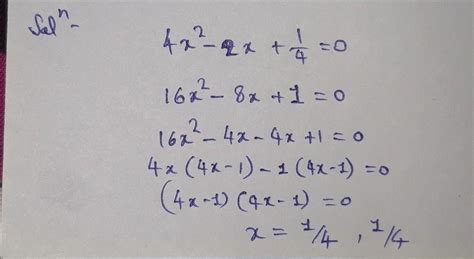 Solⁿ-
4x² - 2x + 1/4 = 0
16x² - 8x + 1 = 0
16x² - 4x - 4x + 1 = 0
4x (4x - 1) - 1 (4x - 1) = 0
(4x - 1) (4x - 1) = 0
x = 1/4 , 1/4